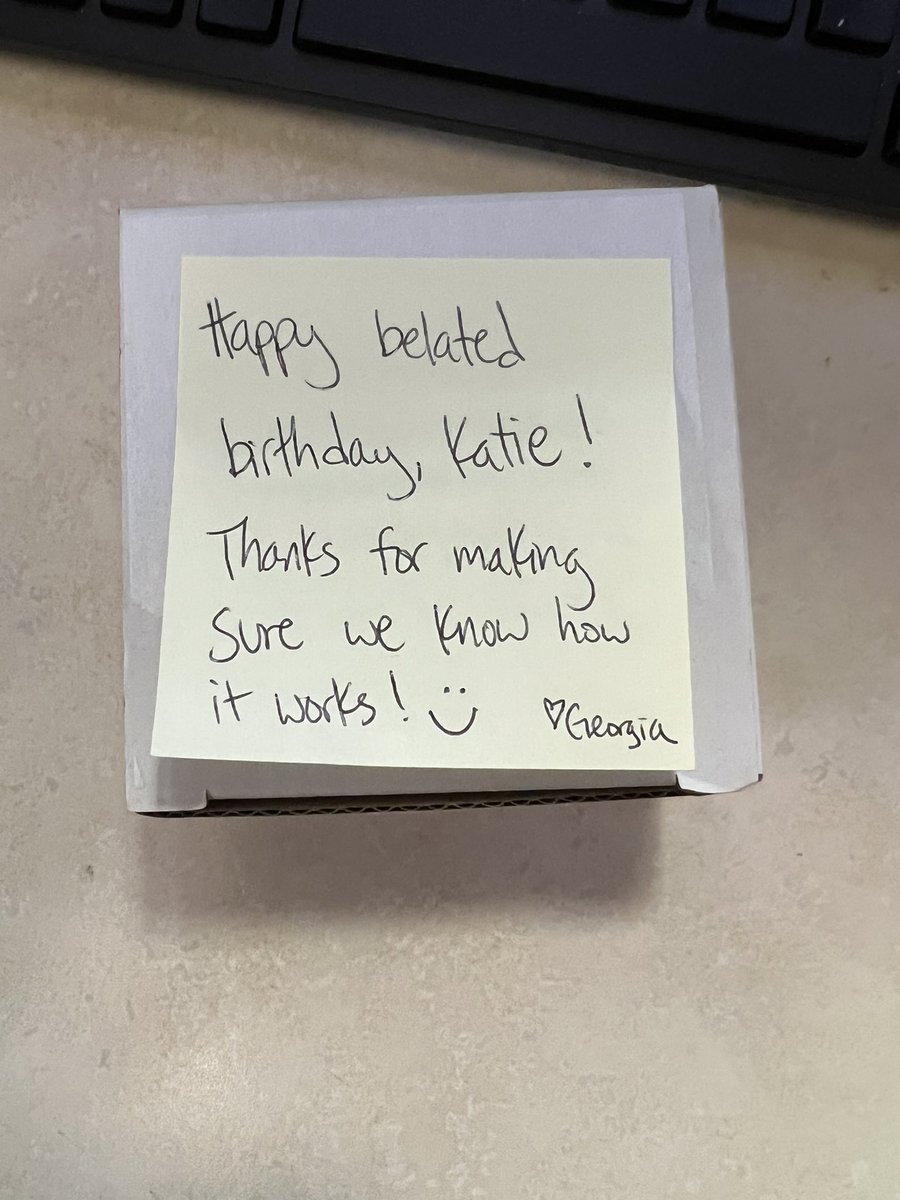 Happy belated
birthday, Katie!
Thanks for making
sure we know how
it works! :) ♡Georgia